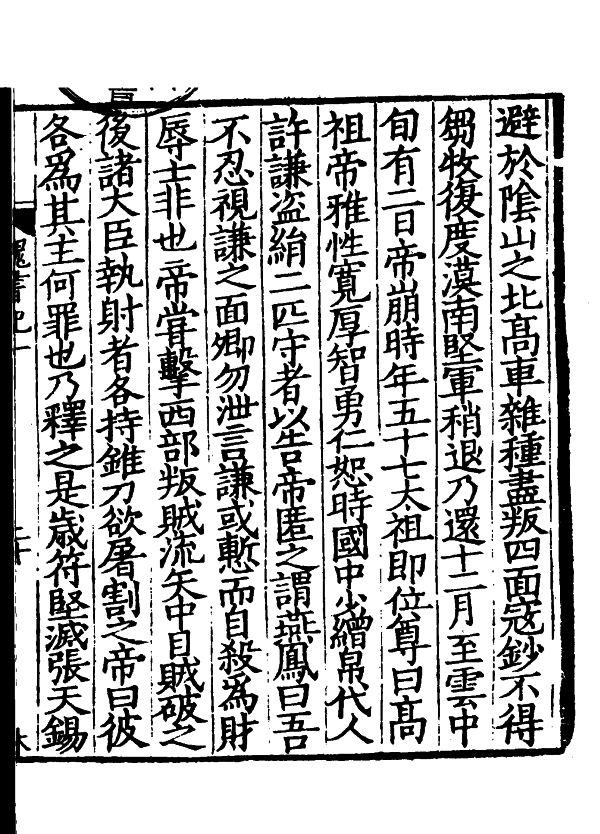 避於陰山之北高車雜種盡叛四面寇鈔不得
芻牧復度漠南堅軍稍退乃還十二月至雲中
旬有二日帝崩時年五十七太祖即位尊曰高
祖帝雅性寬厚智勇仁恕時國中少繒帛代人
許謙盗絹二匹守者以告帝匿之謂燕鳳曰吾
不忍視謙之面卿勿泄言謙或慙而自殺為財
辱士非也帝甞擊西部叛賊流矢中目賊破之
後諸大臣執射者各持錐刀欲屠割之帝曰彼
各爲其主何罪也乃釋之是歳苻堅滅張天錫
魏書紀一